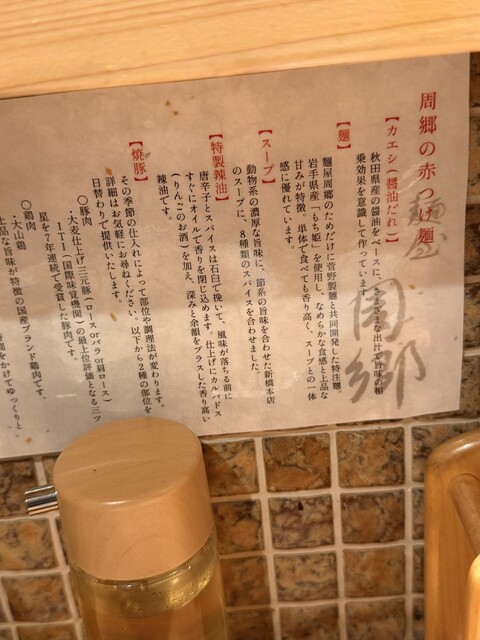 周郷の赤つけ麺
【カエシ(醤油だれ)】
秋田県産の醤油をベースに、さまざまな出汁で旨味の相
乗効果を意識して作っています。
【麺】
麺屋周郷のためだけに菅野製麺と共同開発した特注麺。
岩手県産「もち姫」を使用し、なめらかな食感と上品な
甘みが特徴。単体で食べても香り高く、スープとの一体
感に優れています。
【スープ】
動物系の濃厚な旨味に、節系の旨味を合わせた新橋本店
のスープに、8種類のスパイスを合わせました。
【特製辣油】
唐辛子とスパイスは石臼で挽いて、風味が落ちる前に
すぐにオイルで香りを閉じ込めます。仕上げにカルバドス
(りんごのお酒)を加え、深みと余韻をプラスした香り高い
辣油です。
【焼豚】
その季節の仕入れによって部位や調理法が変わります。
詳細はお気軽にお尋ねください。以下から2種の部位を
日替わりで提供いたします。
○豚肉
・大麦仕上げ三元豚(ロースorバラor肩ロース)
ITI(国際味覚機関)の最上位評価となる三ツ
星を7年連続で受賞した豚肉です。
○鶏肉
・大山鶏
上品な旨味が特徴の国産ブランド鶏肉です。
時間をかけてゆっくりと
麺屋 周郷